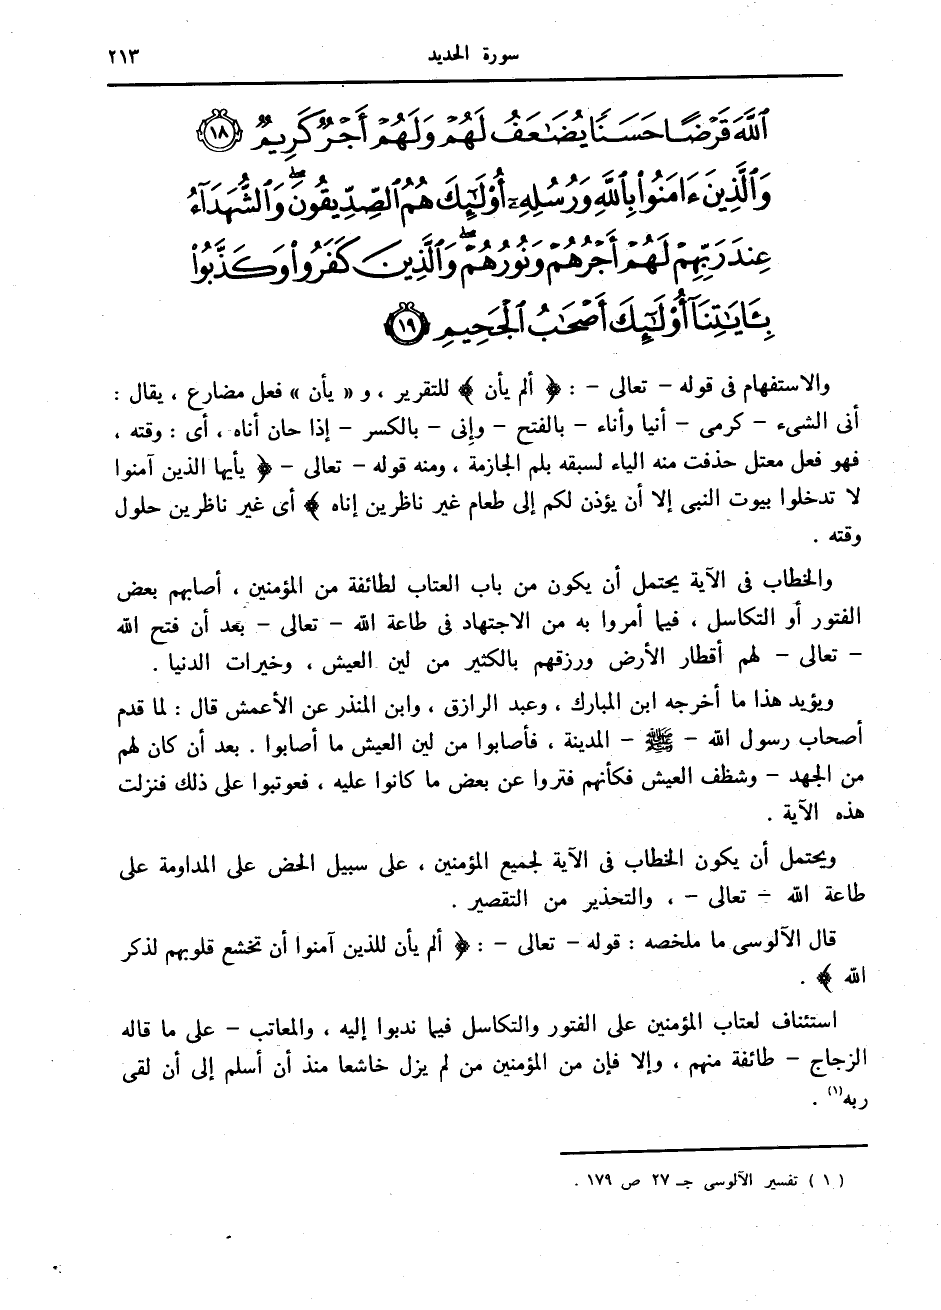 سورة الحديد ٢١٣
ٱللَّهَ قَرْضًا حَسَنًا يُضَٰعَفُ لَهُمْ وَلَهُمْ أَجْرٌ كَرِيمٌ ١٨
وَٱلَّذِينَ ءَامَنُوا۟ بِٱللَّهِ وَرُسُلِهِۦٓ أُو۟لَٰٓئِكَ هُمُ ٱلصِّدِّيقُونَ ۖ وَٱلشُّهَدَآءُ
عِندَ رَبِّهِمْ لَهُمْ أَجْرُهُمْ وَنُورُهُمْ ۖ وَٱلَّذِينَ كَفَرُوا۟ وَكَذَّبُوا۟
بِـَٔايَٰتِنَآ أُو۟لَٰٓئِكَ أَصْحَٰبُ ٱلْجَحِيمِ ١٩
والاستفهام فى قوله – تعالى – : ﴿ ألم يأن ﴾ للتقرير ، و « يأن » فعل مضارع ، يقال :
أنى الشىء – كرمى – أنيا وأناء – بالفتح – وإنى – بالكسر – إذا حان أناه ، أى : وقته ،
فهو فعل معتل حذفت منه الياء لسبقه بلم الجازمة ، ومنه قوله – تعالى – ﴿ يأيها الذين آمنوا
لا تدخلوا بيوت النبى إلا أن يؤذن لكم إلى طعام غير ناظرين إناه ﴾ أى غير ناظرين حلول
وقته .
والخطاب فى الآية يحتمل أن يكون من باب العتاب لطائفة من المؤمنين ، أصابهم بعض
الفتور أو التكاسل ، فيما أمروا به من الاجتهاد فى طاعة الله – تعالى – بعد أن فتح الله
– تعالى – لهم أقطار الأرض ورزقهم بالكثير من لين العيش ، وخيرات الدنيا .
ويؤيد هذا ما أخرجه ابن المبارك ، وعبد الرازق ، وابن المنذر عن الأعمش قال : لما قدم
أصحاب رسول الله – ﷺ – المدينة ، فأصابوا من لين العيش ما أصابوا . بعد أن كان لهم
من الجهد – وشظف العيش فكأنهم فتروا عن بعض ما كانوا عليه ، فعوتبوا على ذلك فنزلت
هذه الآية .
ويحتمل أن يكون الخطاب فى الآية لجميع المؤمنين ، على سبيل الحض على المداومة على
طاعة الله – تعالى – ، والتحذير من التقصير .
قال الآلوسى ما ملخصه : قوله – تعالى – : ﴿ ألم يأن للذين آمنوا أن تخشع قلوبهم لذكر
الله ﴾ .
استئناف لعتاب المؤمنين على الفتور والتكاسل فيما ندبوا إليه ، والمعاتب – على ما قاله
الزجاج – طائفة منهم ، وإلا فإن من المؤمنين من لم يزل خاشعا منذ أن أسلم إلى أن لقى
ربه(١) .
( ١ ) تفسير الآلوسى جـ ٢٧ ص ١٧٩ .